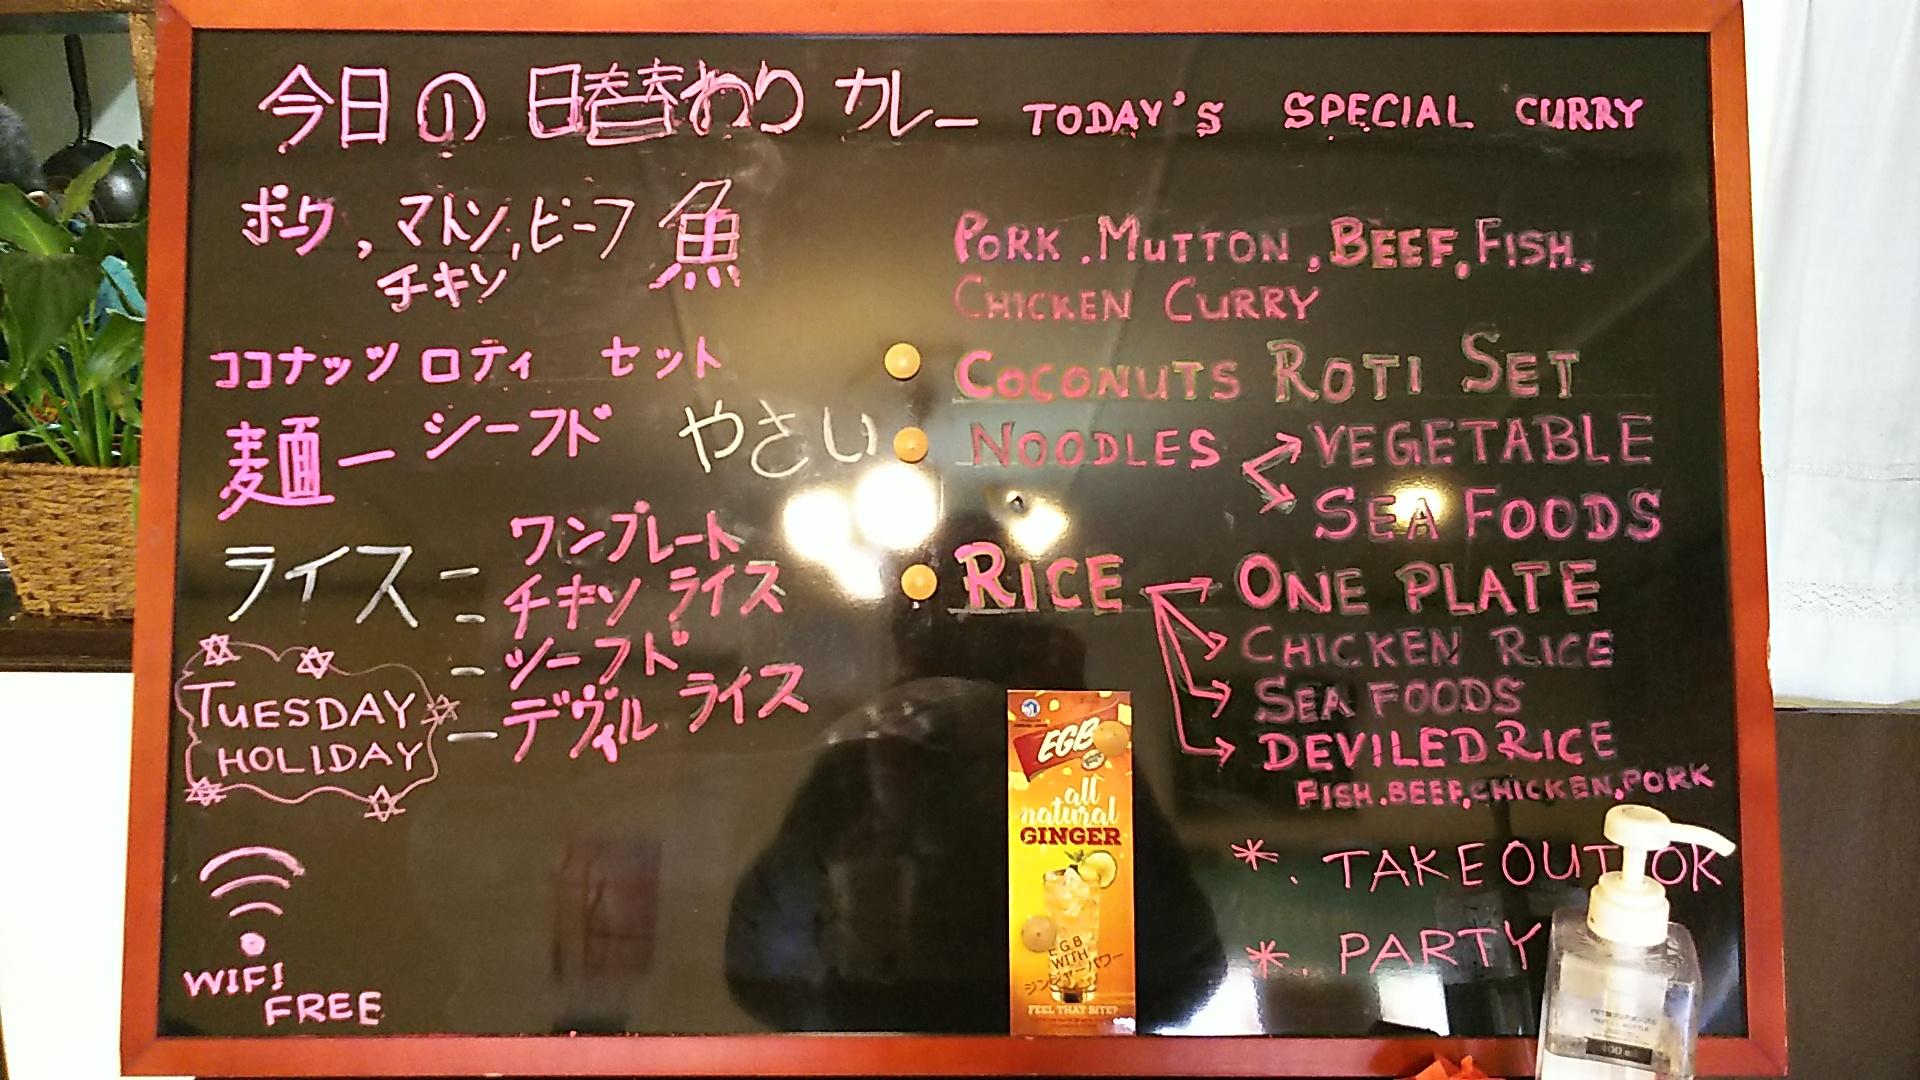 今日の日替わりカレー TODAY'S SPECIAL CURRY
ポーク, マトン, ビーフ 魚
チキン
PORK, MUTTON, BEEF, FISH,
CHICKEN CURRY
ココナッツ ロティ セット
COCONUTS ROTI SET
麺ー シーフド やさい
NOODLES VEGETABLE
SEA FOODS
ライス - ワンプレート
- チキン ライス
- シーフド
- デヴィル ライス
RICE ONE PLATE
CHICKEN RICE
SEA FOODS
DEVILED RICE
FISH. BEEF, CHICKEN, PORK
TUESDAY
HOLIDAY
* . TAKE OUT OK
* . PARTY
WIFI
FREE
EGB
all
natural
GINGER
E.G.B
WITH
ジンジャーパワー
FEEL THAT BITE!
400 ml